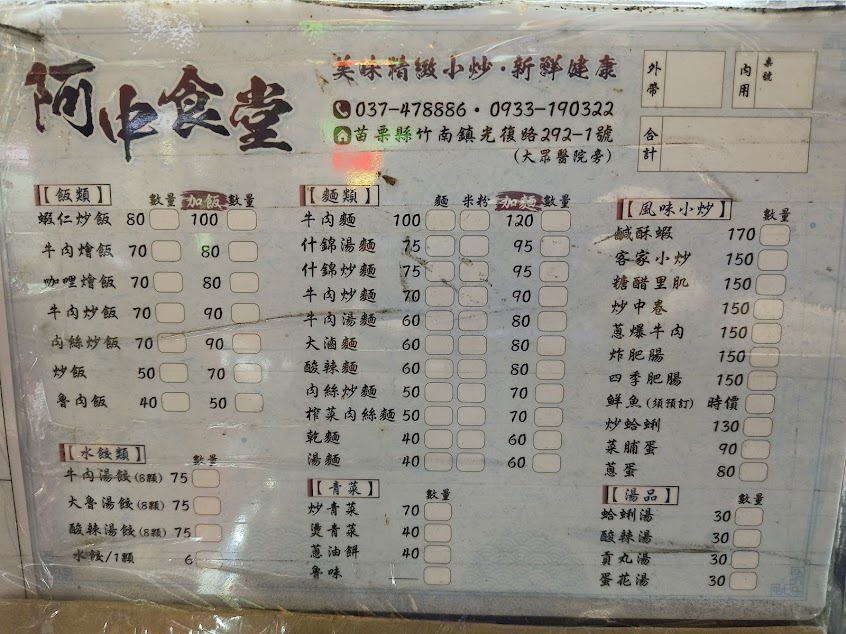 阿中食堂
美味精緻小炒·新鮮健康
037-478886·0933-190322
苗栗縣竹南鎮光復路292-1號
(大眾醫院旁)
外帶
內用
桌號
合計
【飯類】 數量 加飯 數量
蝦仁炒飯 80 100
牛肉燴飯 70 80
咖哩燴飯 70 80
牛肉炒飯 70 90
肉絲炒飯 70 90
炒飯 50 70
魯肉飯 40 50
【水餃類】 數量
牛肉湯餃(8顆) 75
大魯湯餃(8顆) 75
酸辣湯餃(8顆) 75
水餃/1顆 6
【麵類】 麵 米粉 加麵 數量
牛肉麵 100 120
什錦湯麵 75 95
什錦炒麵 75 95
牛肉炒麵 70 90
牛肉湯麵 60 80
大滷麵 60 80
酸辣麵 60 80
肉絲炒麵 50 70
榨菜肉絲麵 50 70
乾麵 40 60
湯麵 40 60
【青菜】 數量
炒青菜 70
燙青菜 40
蔥油餅 40
魯味
【風味小炒】 數量
鹹酥蝦 170
客家小炒 150
糖醋里肌 150
炒中卷 150
蔥爆牛肉 150
炸肥腸 150
四季肥腸 150
鮮魚(須預訂) 時價
炒蛤蜊 130
菜脯蛋 90
蔥蛋 80
【湯品】 數量
蛤蜊湯 30
酸辣湯 30
貢丸湯 30
蛋花湯 30